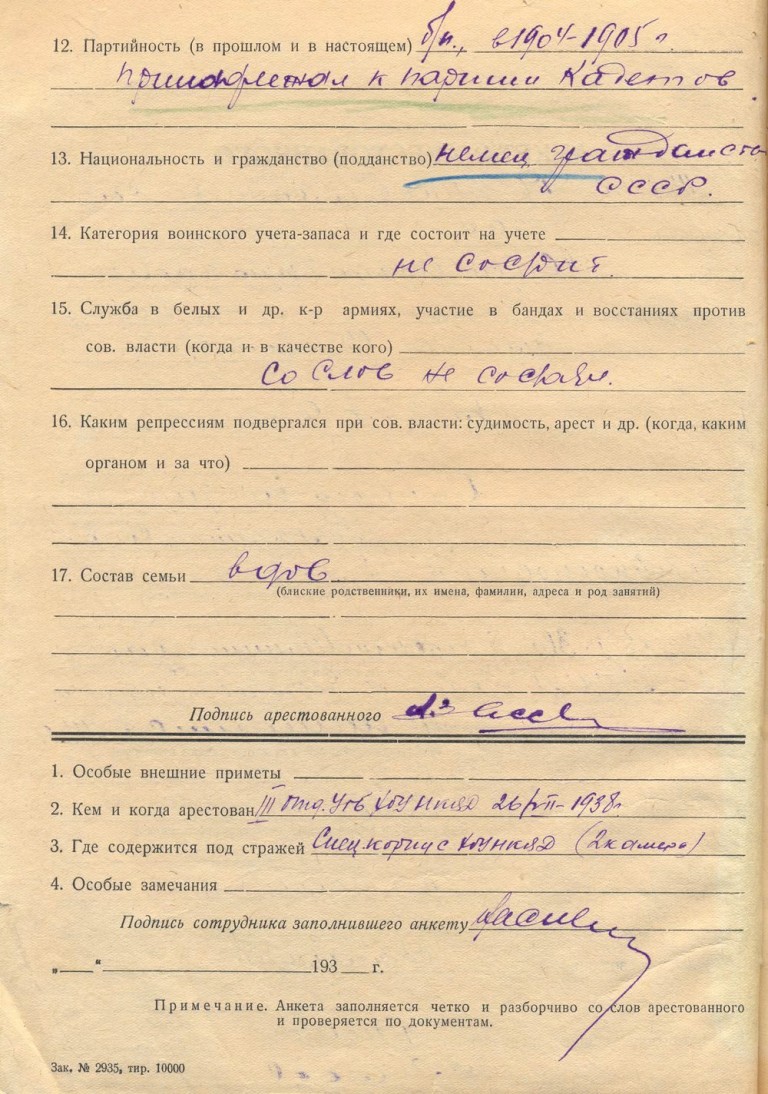 12. Партийность (в прошлом и в настоящем) б/п., в 1904-1905 г.
принадлежал к партии Кадетов
13. Национальность и гражданство (подданство) немец, гражданство
СССР.
14. Категория воинского учета-запаса и где состоит на учете
не состоит.
15. Служба в белых и др. к-р армиях, участие в бандах и восстаниях против
сов. власти (когда и в качестве кого)
со слов не состоял.
16. Каким репрессиям подвергался при сов. власти: судимость, арест и др. (когда, каким
органом и за что)
17. Состав семьи вдов
(блиские родственники, их имена, фамилии, адреса и род занятий)
Подпись арестованного
1. Особые внешние приметы
2. Кем и когда арестован III отд. УГБ ХОУ НКВД 26/VII-1938г
3. Где содержится под стражей Спецкорпус ХОУНКВД (2 камера)
4. Особые замечания
Подпись сотрудника заполнившего анкету
„ “ 193 г.
Примечание. Анкета заполняется четко и разборчиво со слов арестованного
и проверяется по документам.
Зак. № 2935, тир. 10000